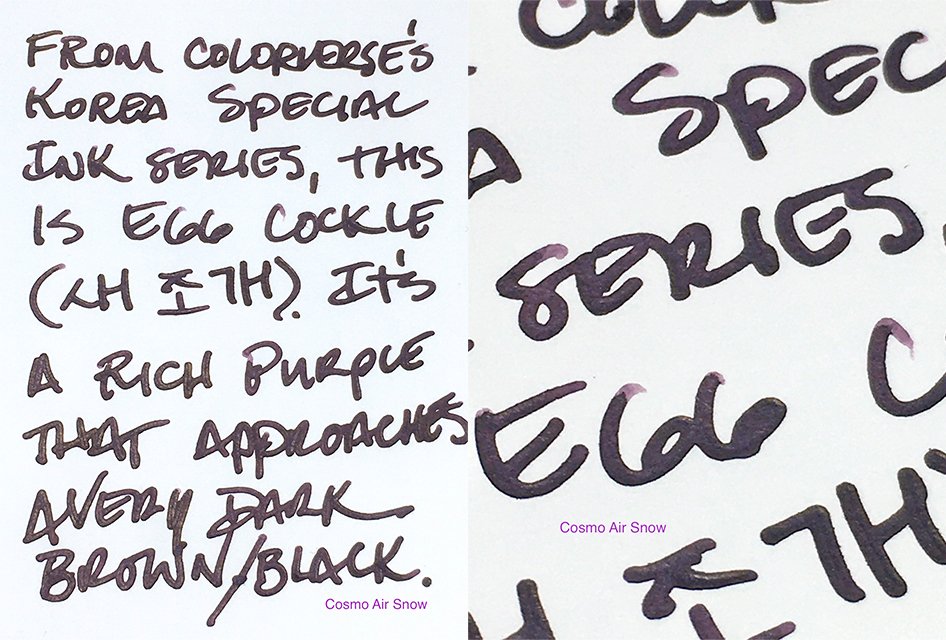 FROM COLORVERSE'S
KOREA SPECIAL
INK SERIES, THIS
IS EGG COCKLE
(새 조개). IT'S
A RICH PURPLE
THAT APPROACHES
A VERY DARK
BROWN/BLACK.
Cosmo Air Snow
SPEC
SERIES
EGG C
Cosmo Air Snow
조개